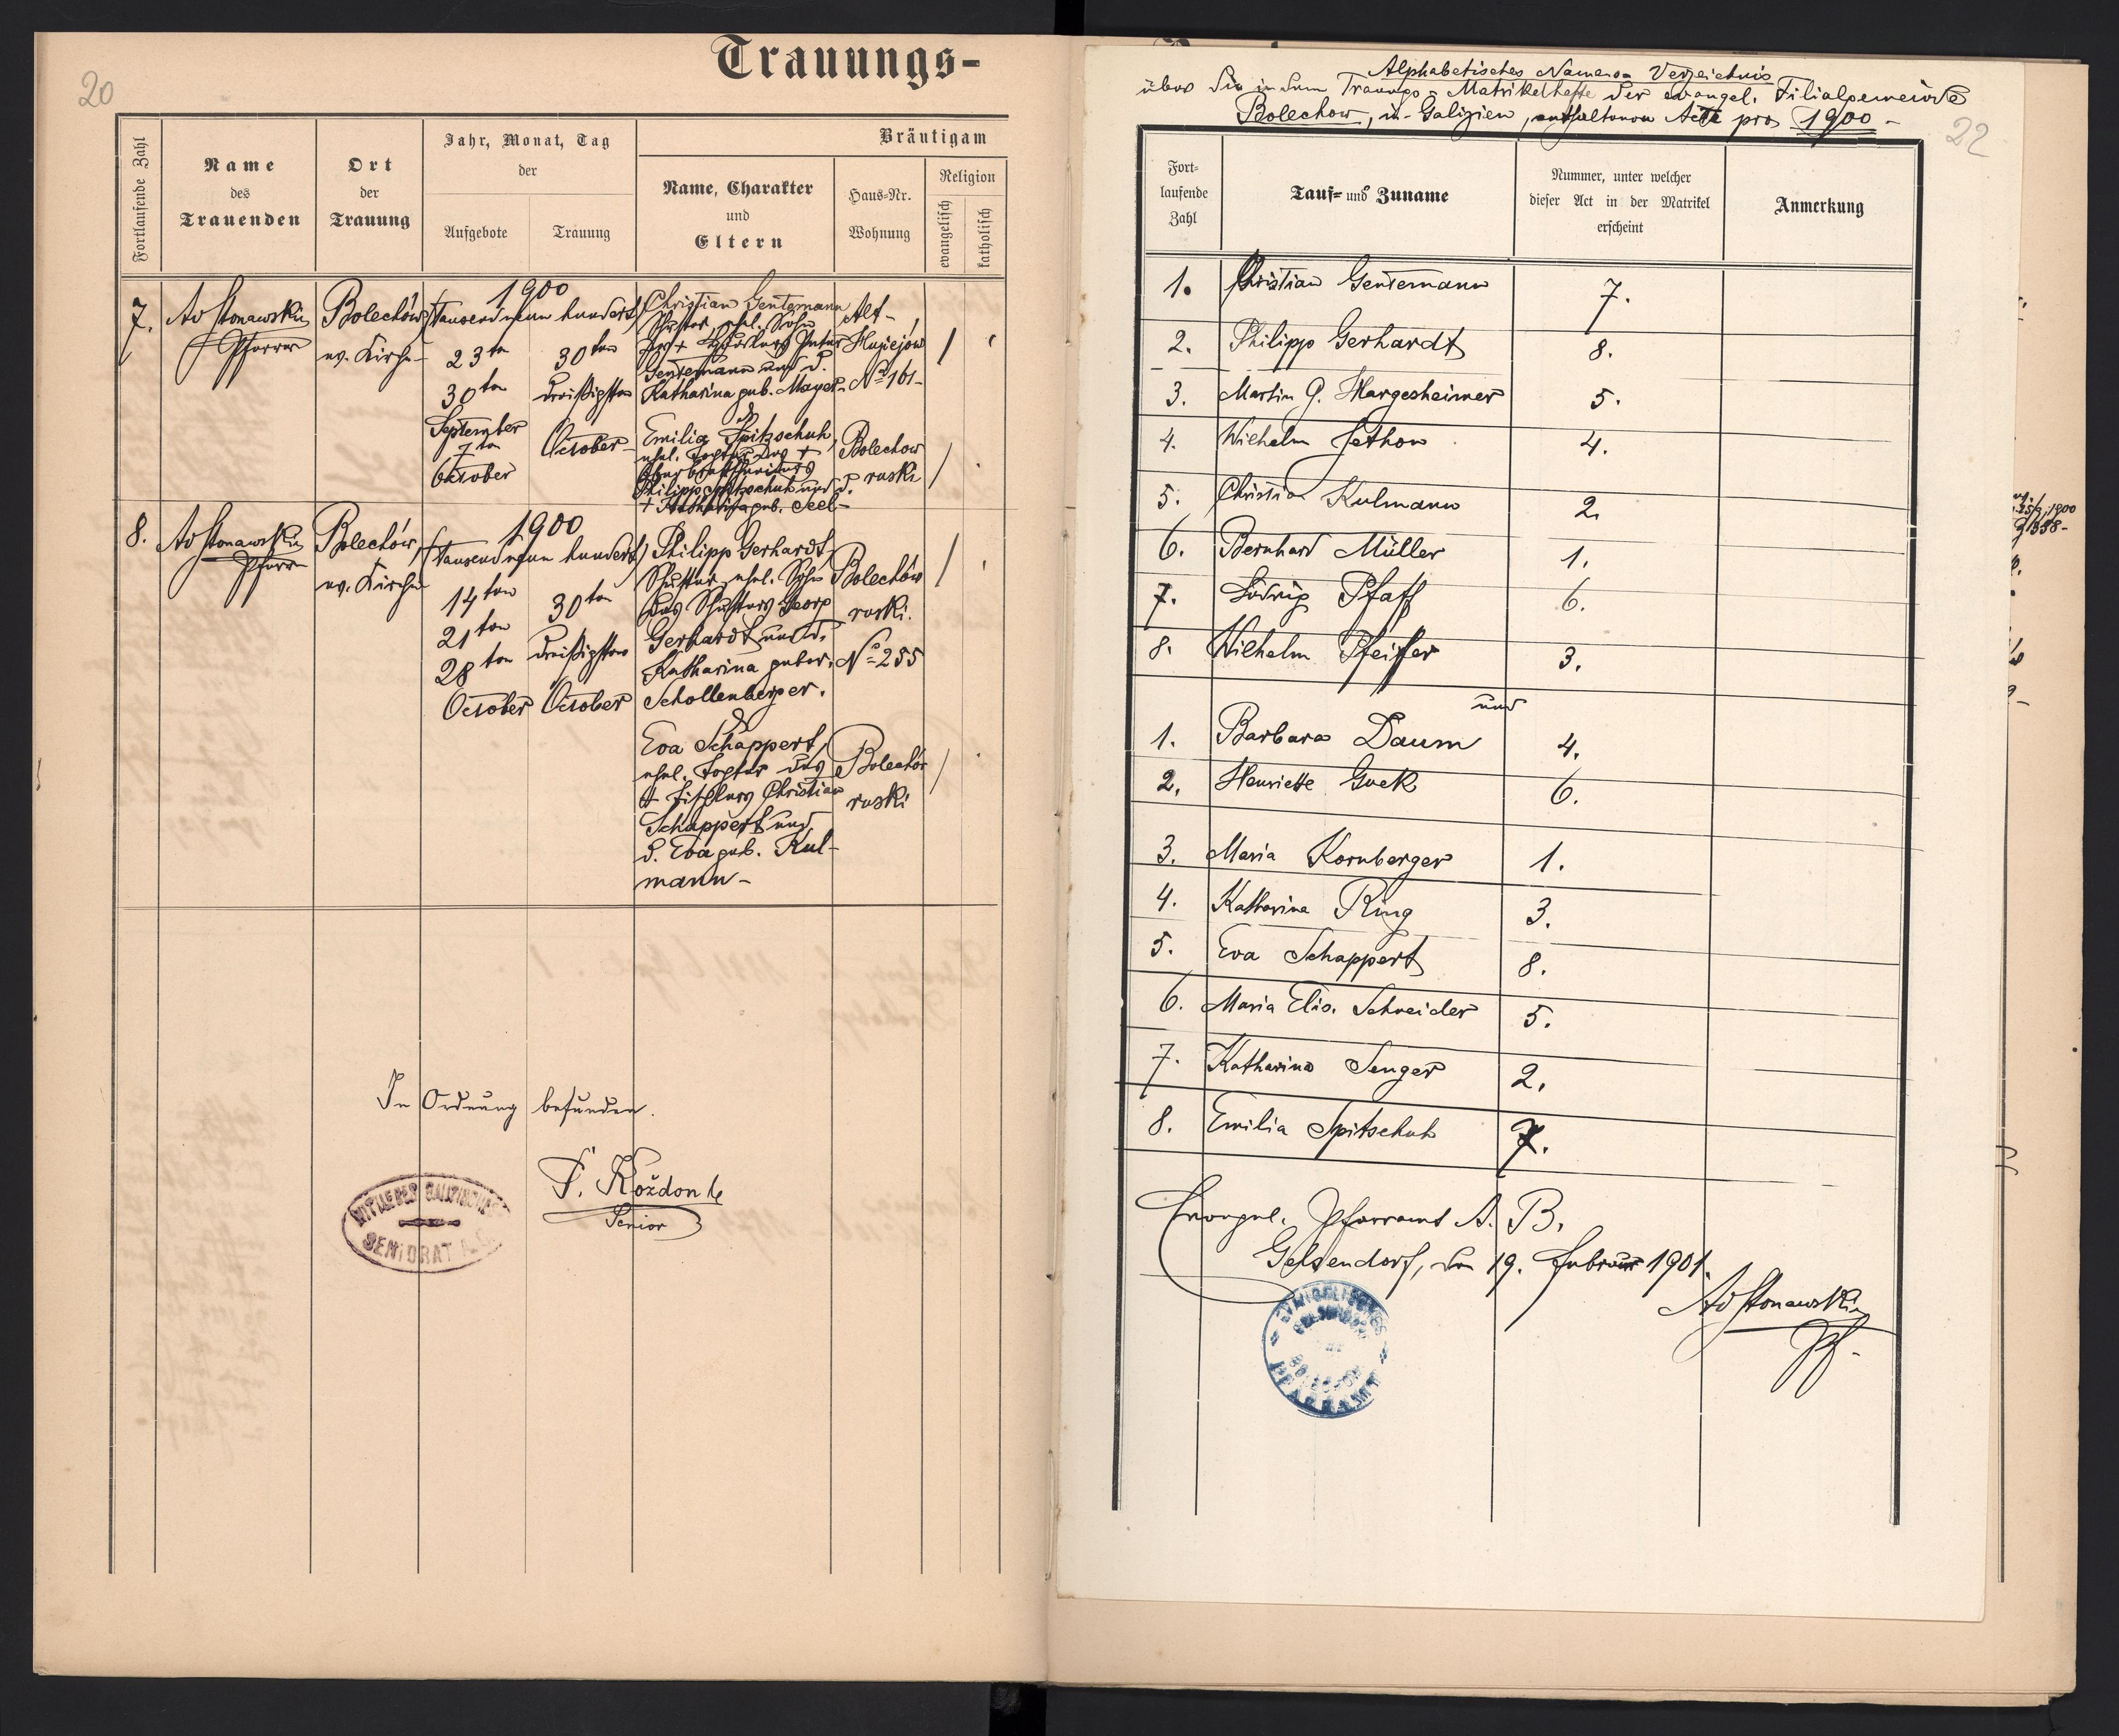 20
Trauungs-
Fortlaufende Zahl
Name
des
Trauenden
Ort
der
Trauung
Jahr, Monat, Tag
der
Aufgebote
Trauung
Bräutigam
Name, Charakter
und
Eltern
Haus-Nr.
Wohnung
Religion
evangelisch
katholisch
7.
Ad Stonawski
Pfarrer
Bolechów
ev. Kirche
1900
(Tausend neun hundert)
23ten
30ten
September
7ten
October
30ten
dreißigsten
October
Christian Gentemann
Schuster, ehel. Sohn
des + Peter
Gentemann und d.
Katharina geb. Mayer
Alt-
Hujejów
No 161-
&
Emilia Spitzschuh,
ehel. Tochter des +
Philipp Spitzschuh und d.
+ Katharina geb. Seel-
Bolechow
ruski
8.
Ad Stonawski
Pfarrer
Bolechów,
ev. Kirche
1900
(Tausend neun hundert)
14ten
21ten
28ten
October
30ten
dreißigsten
October
Philipp Gerhardt,
Schuster, ehel. Sohn
des Schusters Georg
Gerhardt und d.
Katharina gebor.
Schollenberger.
Bolechów
ruski.
No 255
&
Eva Schappert,
ehel. Tochter des
+ Tischlers Christian
Schappert und
d. Eva geb. Kul-
mann-
Bolechów
ruski
In Ordnung befunden.
F. Koždon
Senior
MITTLERES GALIZISCHES
SENIORAT A.C.
22
Alphabetisches Namens-Verzeichnis
über die in dem Trauungs-Matrikelhefte der evangel. Filialgemeinde
Bolechow, in Galizien, enthaltenen Acte pro 1900-
Fort-
laufende
Zahl
Tauf- und Zuname
Nummer, unter welcher
dieser Act in der Matrikel
erscheint
Anmerkung
1. Christian Gentemann 7.
2. Philipp Gerhardt 8.
3. Martin G. Hargesheimer 5.
4. Wilhelm Jethon 4.
5. Christian Kulmann 2.
6. Bernhard Müller 1.
7. Ludwig Pfaff 6.
8. Wilhelm Pfeiffer 3.
und
1. Barbara Daum 4.
2. Henriette Guck 6.
3. Maria Kornberger 1.
4. Katharina Ring 3.
5. Eva Schappert 8.
6. Maria Elis. Schneider 5.
7. Katharina Senger 2.
8. Emilia Spitschuh 7.
Evangel. Pfarramt A. B.
Gelsendorf, den 19. Februar 1901.
Ad Stonawski
Pf.
EVANGELISCHES
PFARRAMT